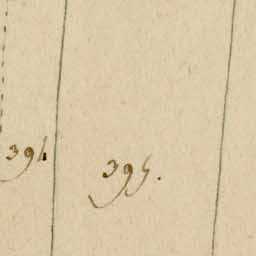 394.
395.